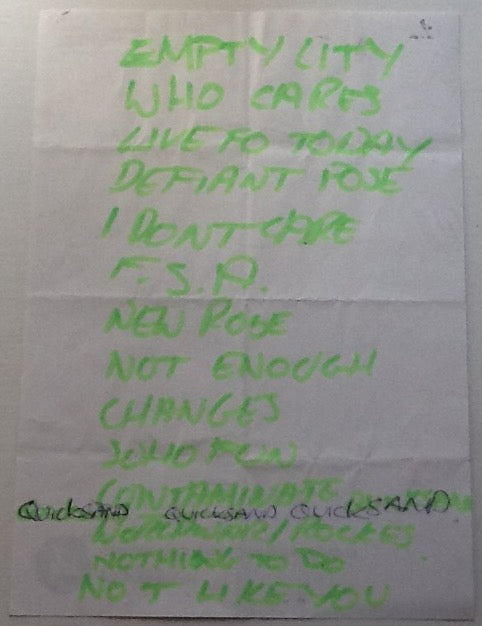 EMPTY CITY
WHO CARES
LIVE FO TODAY
DEFIANT POSE
I DONT CARE
F.S.A.
NEW ROSE
NOT ENOUGH
CHANGES
SOHO FUN
CONTAMINATE
QUICKSAND QUICKSAND QUICKSAND
NOTHING TO DO
NOT LIKE YOU